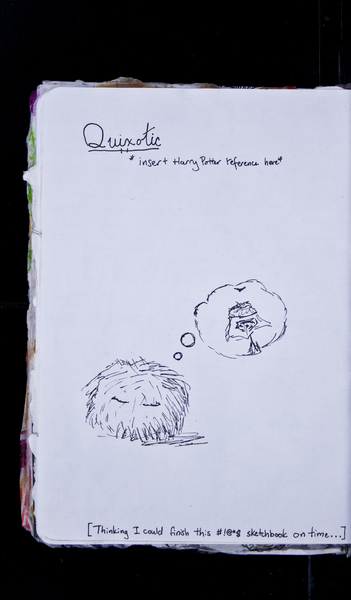 Quixotic
* insert Harry Potter reference here*
[Thinking I could finish this #!@*$ sketchbook on time...]